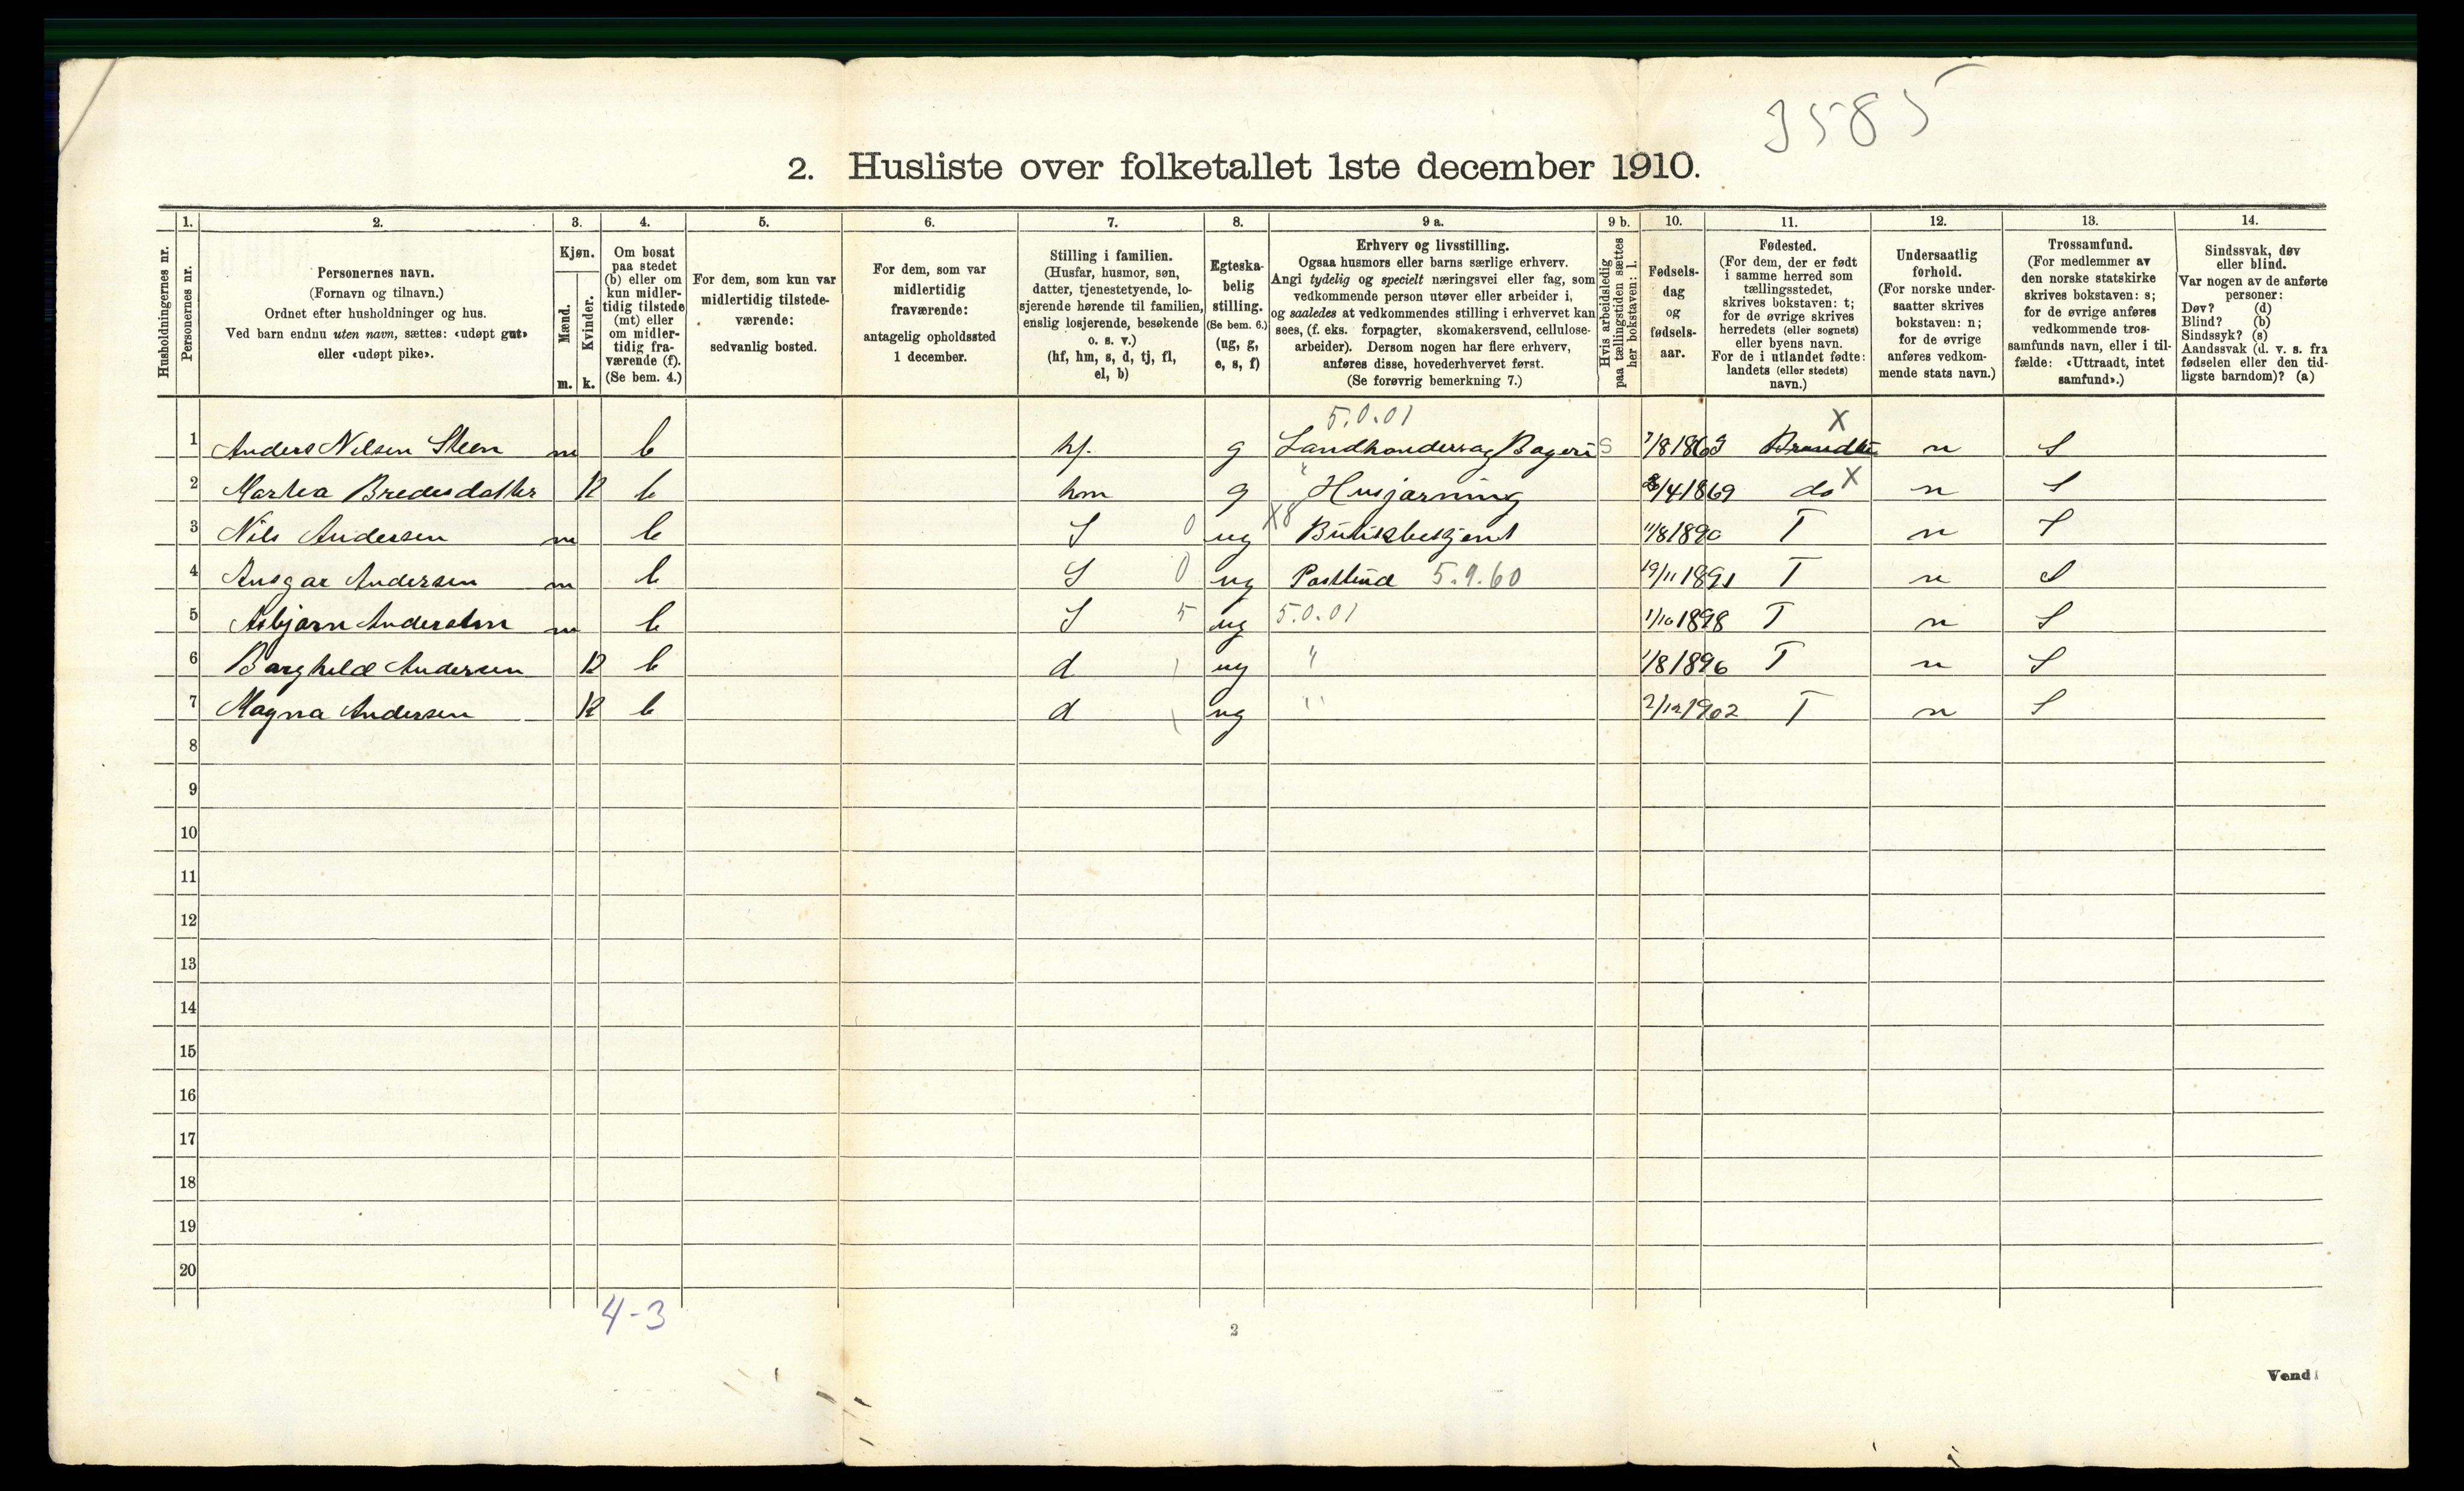 3585
2. Husliste over folketallet 1ste december 1910.
1. 2. 3. 4. 5. 6. 7. 8. 9 a. 9 b. 10. 11. 12. 13. 14.
Husholdningernes nr.
Personernes nr.
Personernes navn.
(Fornavn og tilnavn.)
Ordnet efter husholdninger og hus.
Ved barn endnu uten navn, sættes: «udøpt gut»
eller «udøpt pike».
Kjøn.
Mænd.
m.
Kvinder.
k.
Om bosat
paa stedet
(b) eller om
kun midler-
tidig tilstede
(mt) eller
om midler-
tidig fra-
værende (f).
(Se bem. 4.)
For dem, som kun var
midlertidig tilstede-
værende:
sedvanlig bosted.
For dem, som var
midlertidig
fraværende:
antagelig opholdssted
1 december.
Stilling i familien.
(Husfar, husmor, søn,
datter, tjenestetyende, lo-
sjerende hørende til familien,
enslig losjerende, besøkende
o. s. v.)
(hf, hm, s, d, tj, fl,
el, b)
Egteska-
belig
stilling.
(Se bem. 6.)
(ug, g,
e, s, f)
Erhverv og livsstilling.
Ogsaa husmors eller barns særlige erhverv.
Angi tydelig og specielt næringsvei eller fag, som
vedkommende person utøver eller arbeider i,
og saaledes at vedkommendes stilling i erhvervet kan
sees, (f. eks. forpagter, skomakersvend, cellulose-
arbeider). Dersom nogen har flere erhverv,
anføres disse, hovederhvervet først.
(Se forøvrig bemerkning 7.)
Hvis arbeidsledig
paa tællingstiden sættes
her bokstaven: l.
Fødsels-
dag
og
fødsels-
aar.
Fødested.
(For dem, der er født
i samme herred som
tællingsstedet,
skrives bokstaven: t;
for de øvrige skrives
herredets (eller sognets)
eller byens navn.
For de i utlandet fødte:
landets (eller stedets)
navn.)
Undersaatlig
forhold.
(For norske under-
saatter skrives
bokstaven: n;
for de øvrige
anføres vedkom-
mende stats navn.)
Trossamfund.
(For medlemmer av
den norske statskirke
skrives bokstaven: s;
for de øvrige anføres
vedkommende tros-
samfunds navn, eller i til-
fælde: «Uttraadt, intet
samfund».)
Sindssvak, døv
eller blind.
Var nogen av de anførte
personer:
Døv? (d)
Blind? (b)
Sindssyk? (s)
Aandssvak (d. v. s. fra
fødselen eller den tid-
ligste barndom)? (a)
5.0.01 X
1 Anders Nilsen Steen m b hf. g Landhandler og Bageri S 7/8 1863 n S
2 Martea Bredesdatter K b hm g " Husjærning /4 1869 do X n S
3 Nils Andersen m b S 0 ug X8 Butikbetjent 11/8 1890 T n S
4 Ansgar Andersen m b S 0 ug Postbud 5.9.60 19/11 1891 T n S
5 Asbjørn Andersen m b S 5 ug 5.0.01 1/10 1898 T n S
6 Borghild Andersen K b d 1 ug " 1/8 1896 T n S
7 Magna Andersen K b d 1 ug " 2/12 1902 T n S
8
9
10
11
12
13
14
15
16
17
18
19
20
4-3
2
Vend!